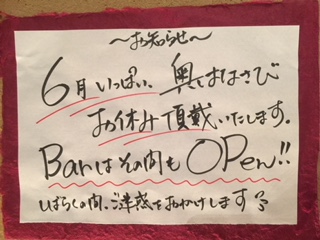 ～お知らせ～
6月いっぱい、奥しおはさび
お休み頂戴いたします。
Barはその間も OPen!!
しばらくの間、ご迷惑をおかけします